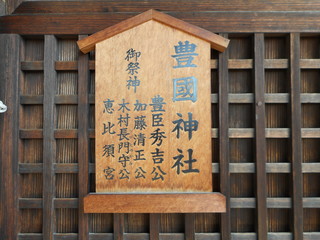 豊國神社
御祭神
豊臣秀吉公
加藤清正公
木村長門守公
恵比須宮